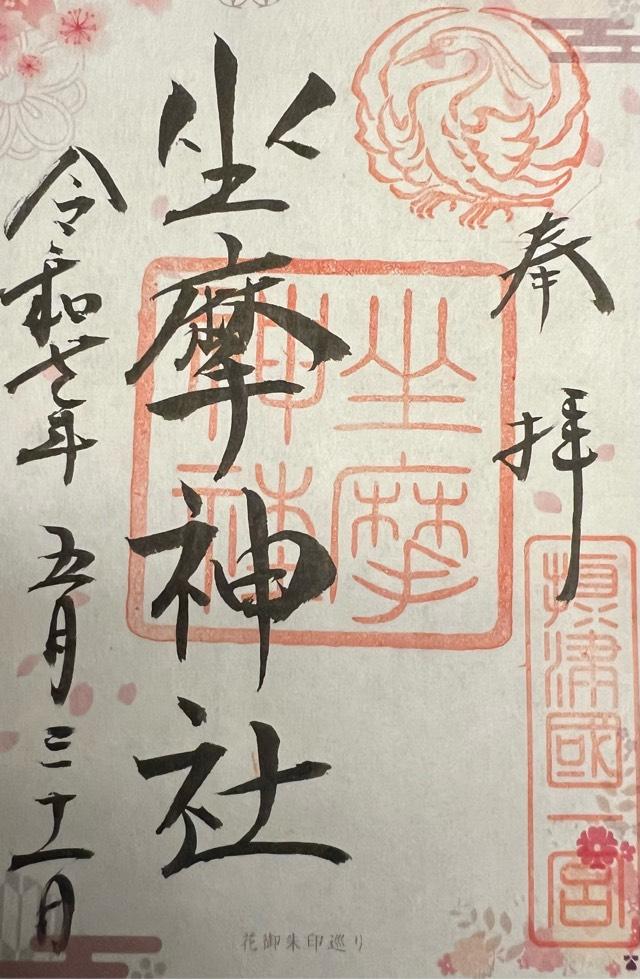 奉拝
摂津國一宮
坐摩神社
坐摩神社
令和七年 五月 三十一日
花御朱印巡り